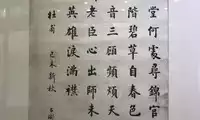 堂何處尋錦官
階碧草自春色
音三顧頻煩天
老臣心出師未
英雄淚滿襟
杜甫 新秋